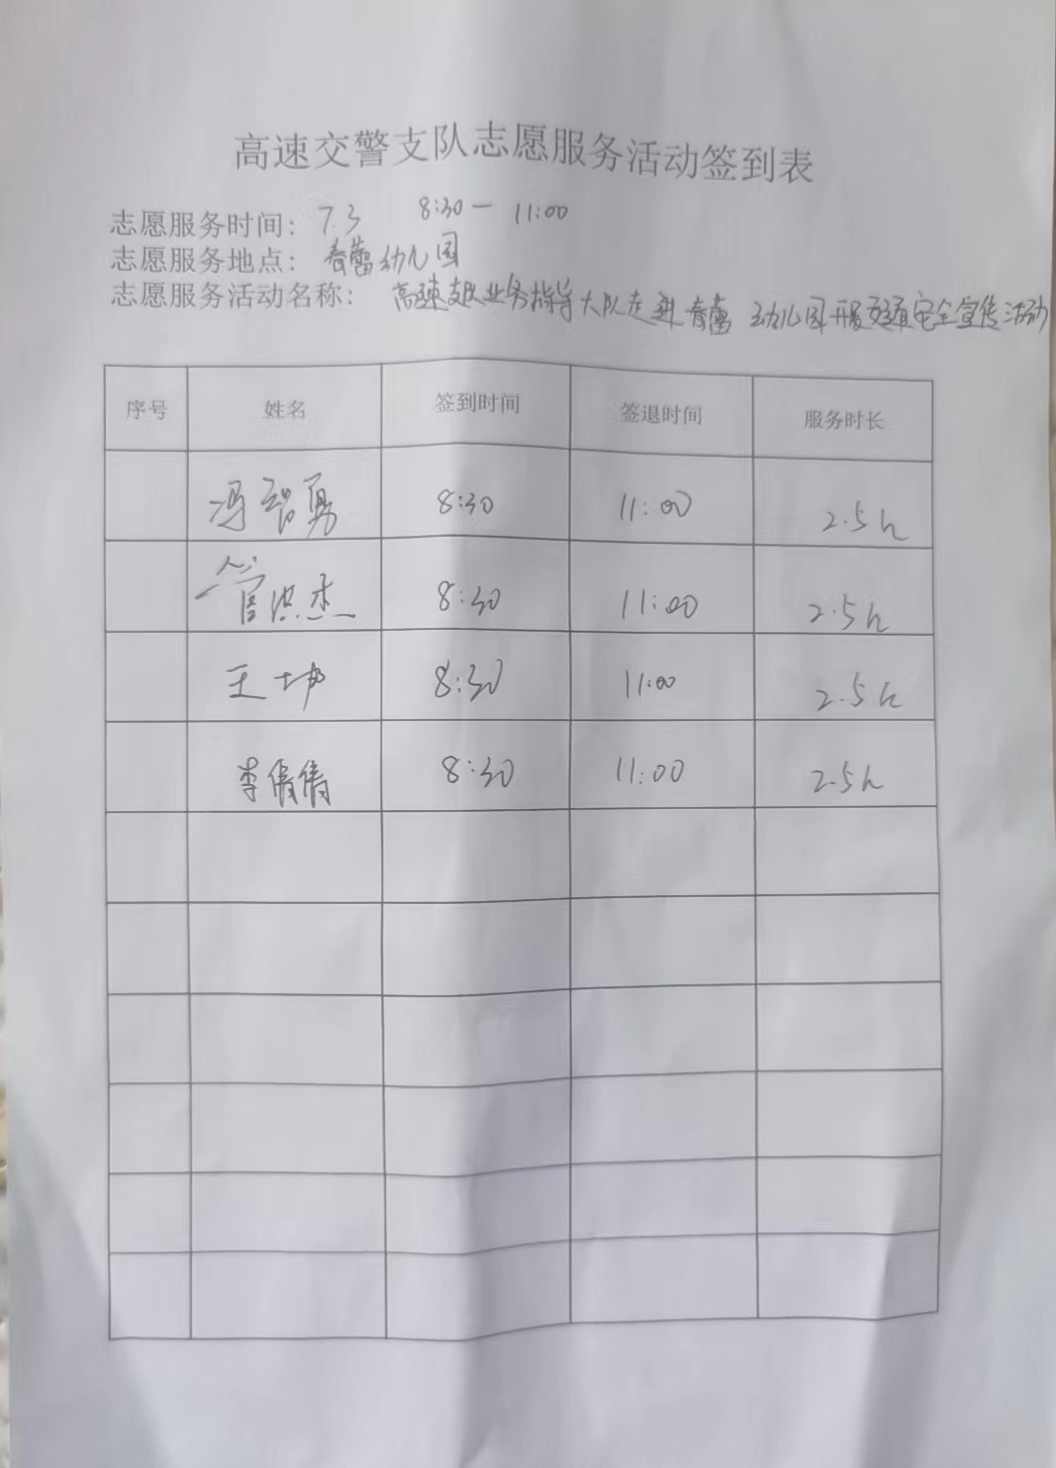 高速交警支队志愿服务活动签到表
志愿服务时间: 7.3 8:30— 11:00
志愿服务地点: 春蕾幼儿园
志愿服务活动名称: 高速支队业务指导大队走进春蕾幼儿园开展交通安全宣传活动
序号 姓名 签到时间 签退时间 服务时长
冯智勇 8:30 11:00 2.5h
管洪杰 8:30 11:00 2.5h
王坤 8:30 11:00 2.5h
李倩倩 8:30 11:00 2.5h